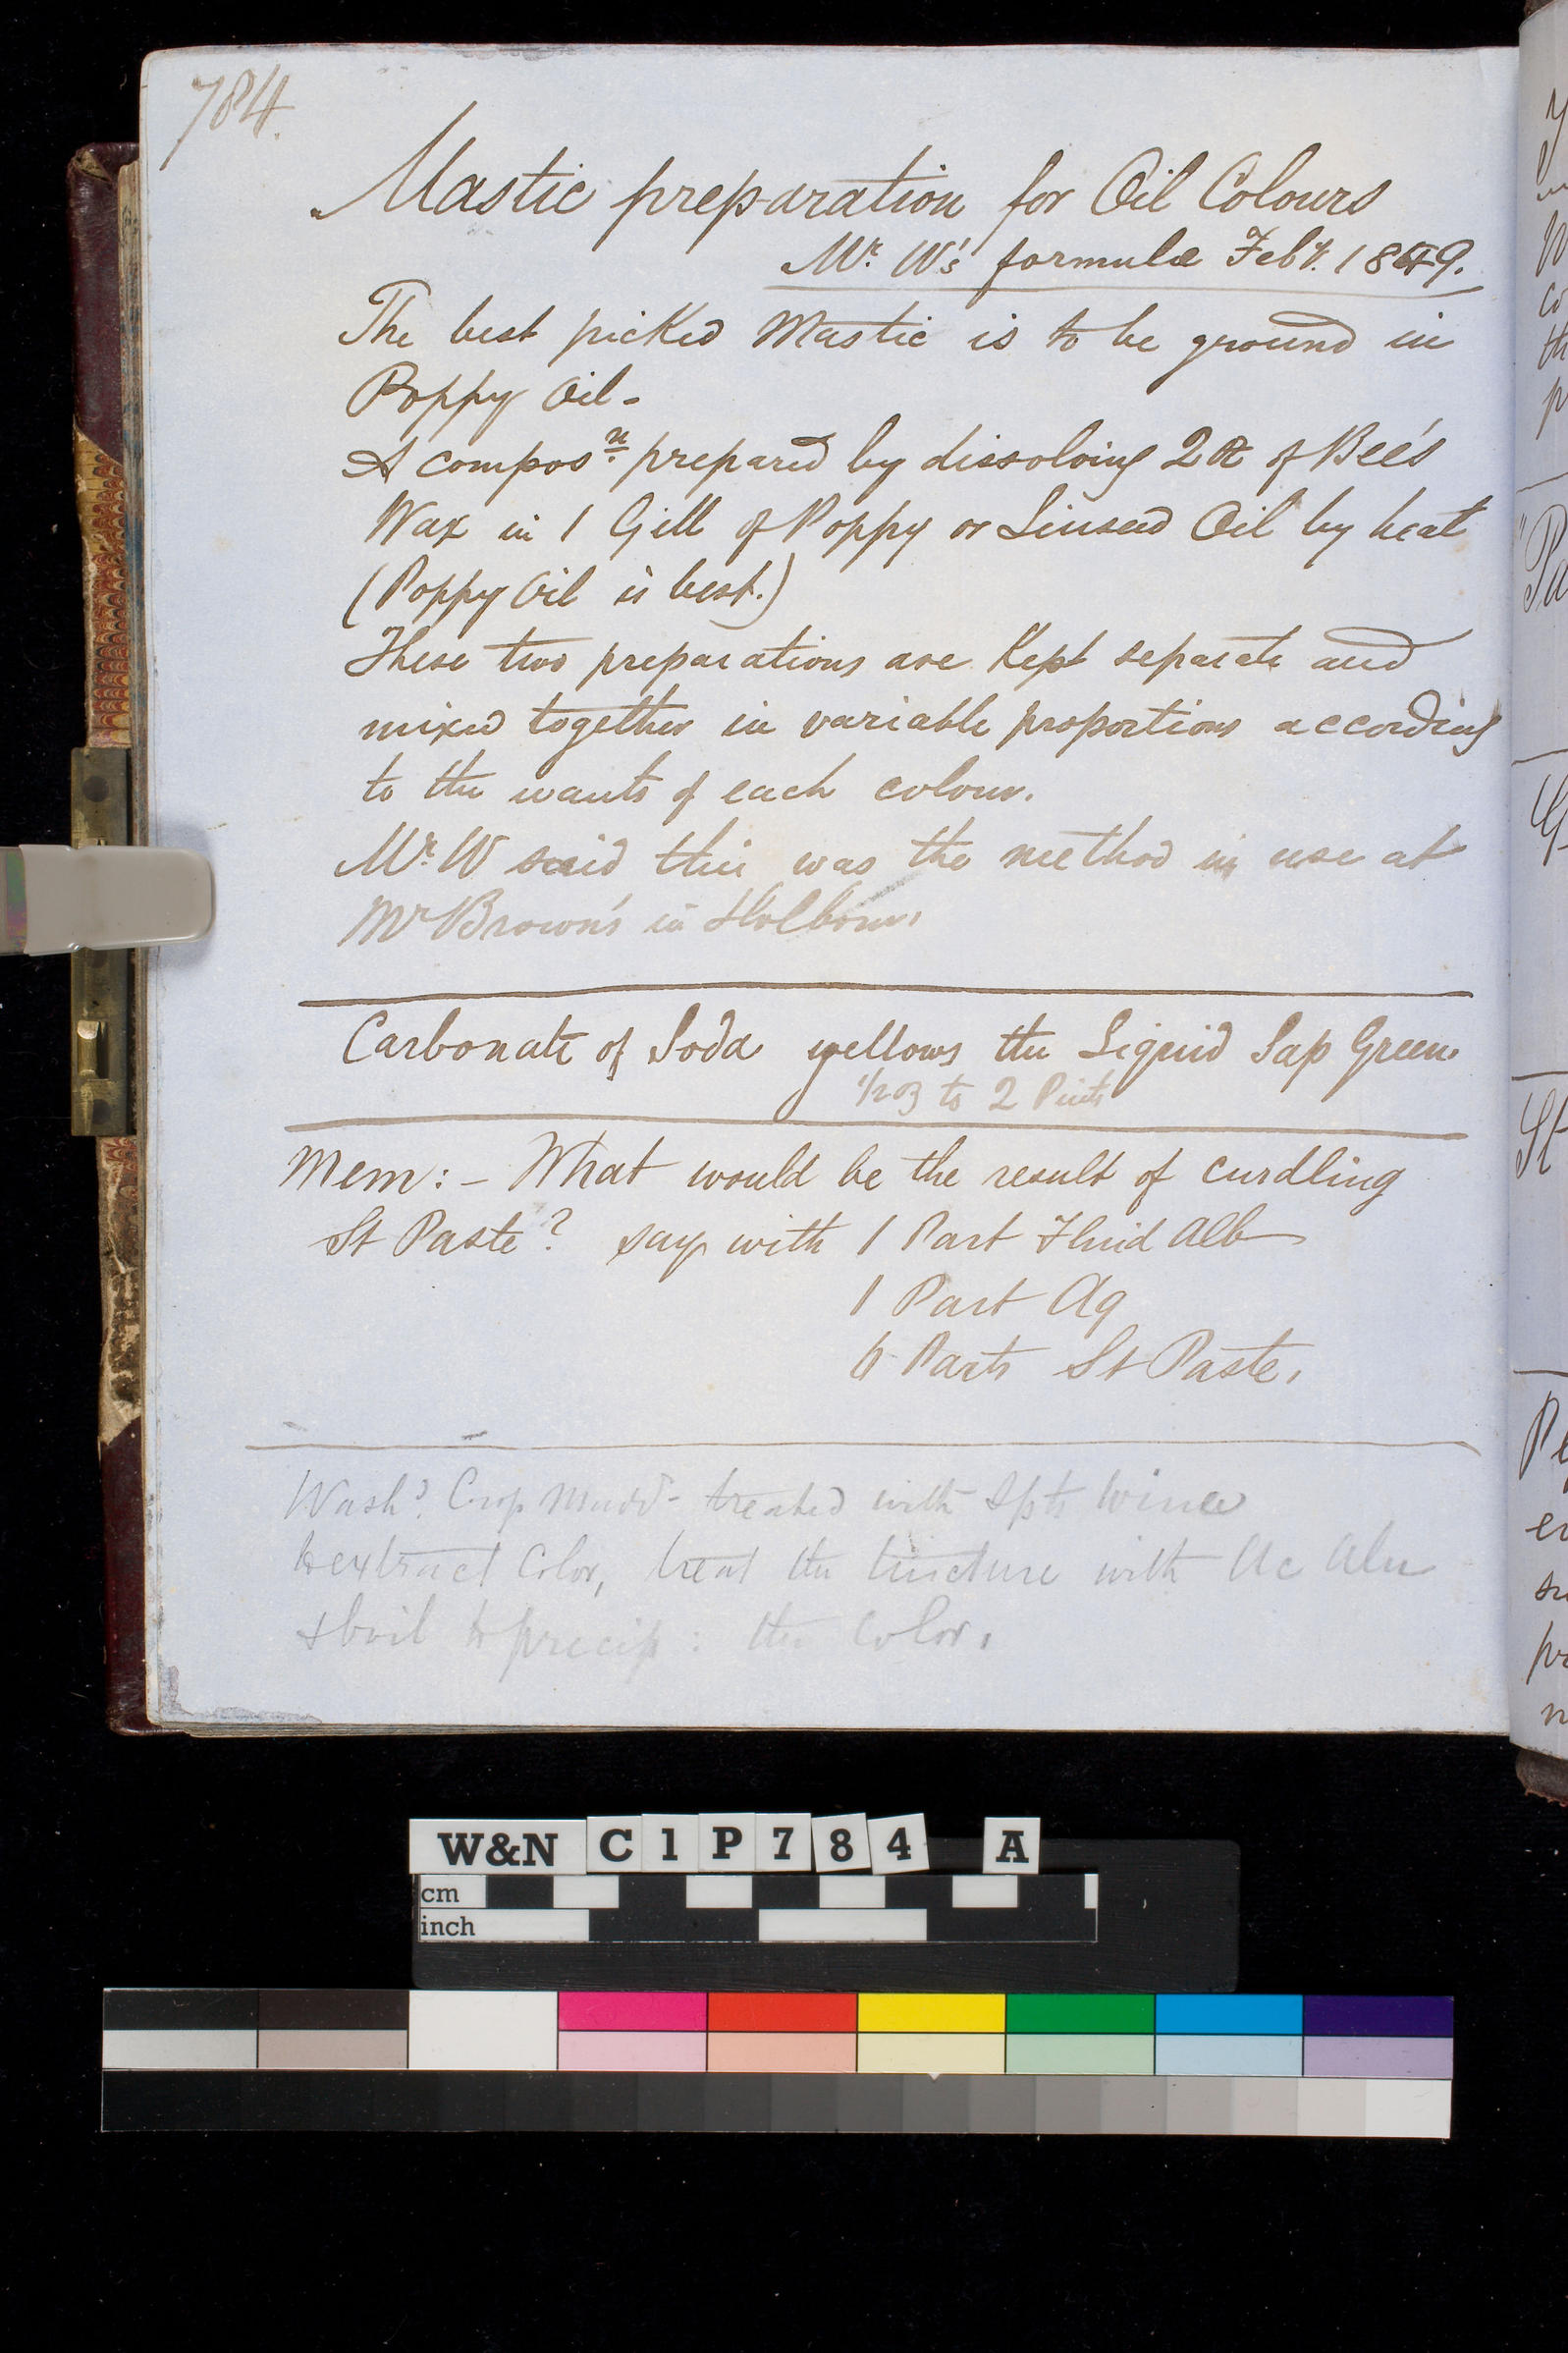 784.
Mastic preparation for Oil Colours
Mr. W's formulæ Feby. 1849.
The best picked Mastic is to be ground in
Poppy Oil -
A composn. prepared by dissolving 2 ℔ of Bee's
Wax in 1 Gill of Poppy or Linseed Oil by heat
(Poppy Oil is best.)
These two preparations are kept separate and
mixed together in variable proportions according
to the wants of each colour.
Mr. W said this was the method in use at
Mr Brown's in Holborn.
Carbonate of Soda yellows the Liquid Sap Green.
1/2 oz to 2 Pints
Mem: - What would be the result of curdling
St Paste? say with 1 Part Fluid Alb
1 Part Aq
6 Parts St Paste.
Washd. Crop Madd - treated with Spts Wine
to extract Color, treat the tincture with Ac Alu
& boil to precip: the Color.
W&N C1P784 A
cm
inch